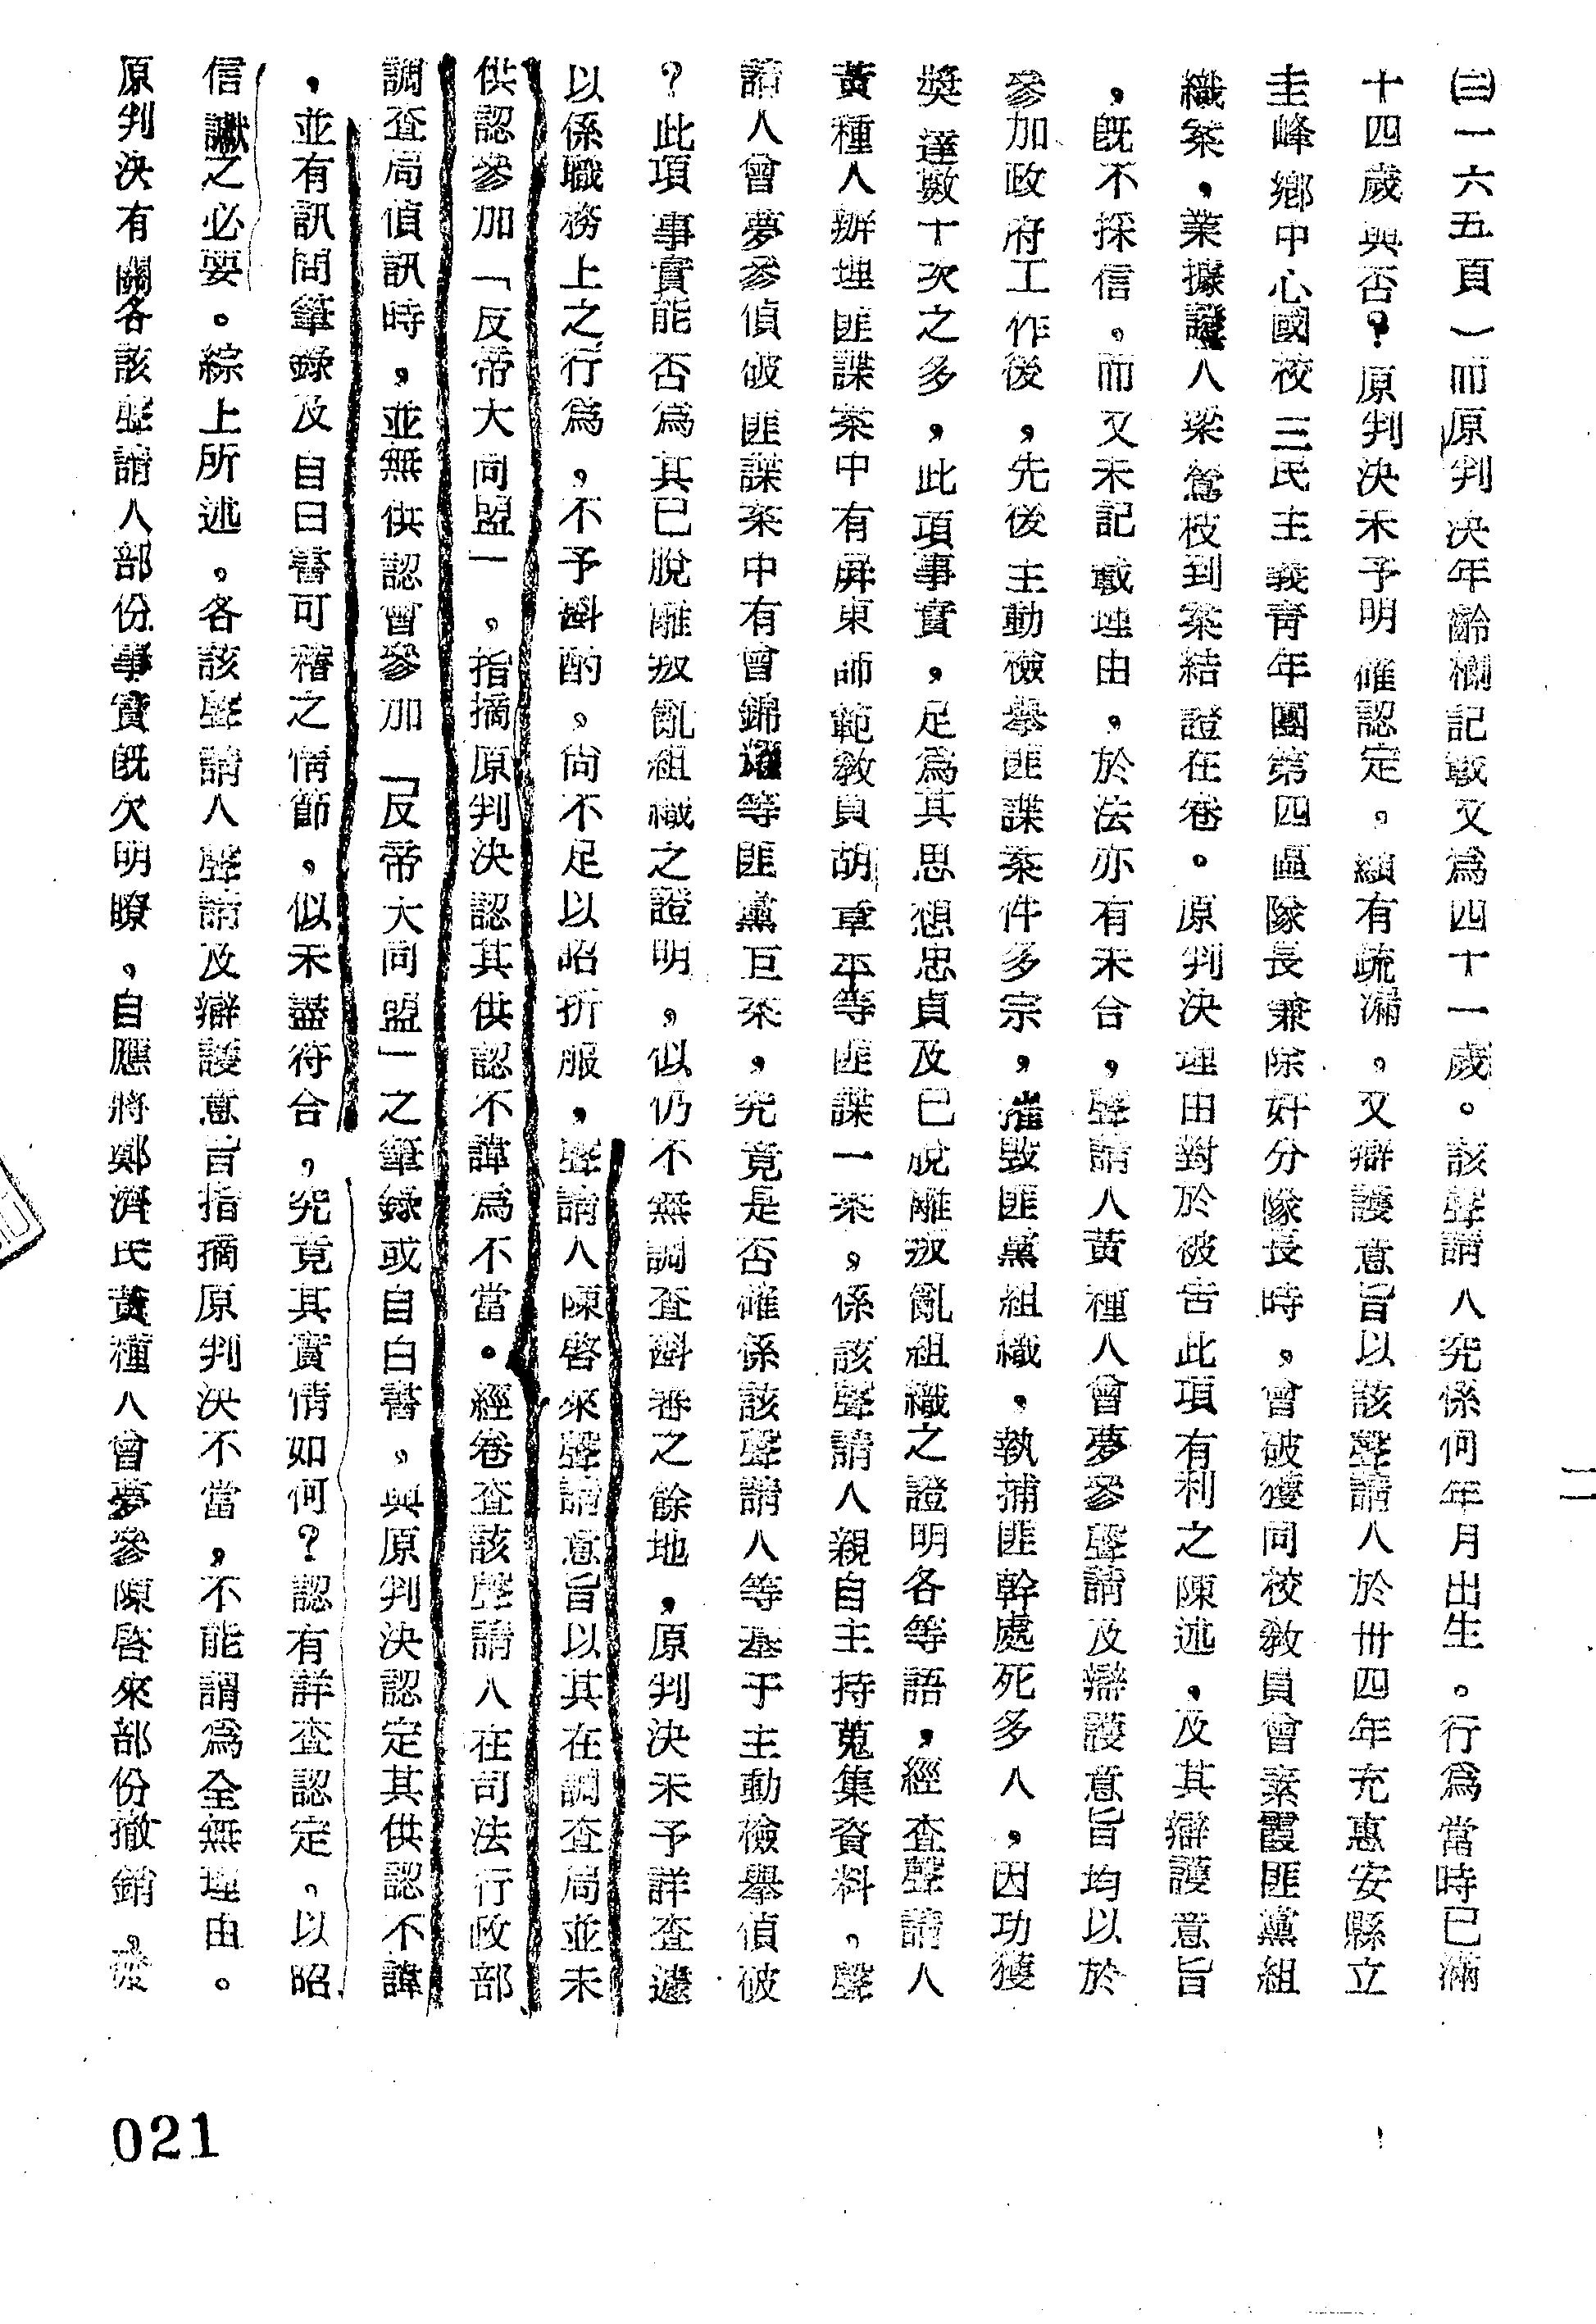 ㈢一六五頁）而原判決年齡欄記載又為四十一歲。該聲請人究係何年月出生。行為當時已滿
十四歲與否？原判決未予明確認定。顯有疏漏。又辯護意旨以該聲請人於卅四年充惠安縣立
圭峰鄉中心國校三民主義青年團第四區隊長兼除奸分隊長時，曾破獲同校教員曾素霞匪黨組
織案，業據證人梁鶯枝到案結證在卷。原判決理由對於被告此項有利之陳述，及其辯護意旨
，既不採信。而又未記載理由，於法亦有未合，聲請人黃種人曾夢參聲請及辯護意旨均以於
參加政府工作後，先後主動檢舉匪諜案件多宗，摧毀匪黨組織，執捕匪幹處死多人，因功獲
獎達數十次之多，此項事實，足為其思想忠貞及已脫離叛亂組織之證明各等語，經查聲請人
黃種人辦理匪諜案中有屏東師範教員胡章平等匪諜一案，係該聲請人親自主持蒐集資料，聲
請人曾夢參偵破匪諜案中有曾錦耀等匪黨巨案，究竟是否確係該聲請人等基于主動檢舉偵破
？此項事實能否為其已脫離叛亂組織之證明，似仍不無調查斟審之餘地，原判決未予詳查遽
以係職務上之行為，不予斟酌。尚不足以昭折服，聲請人陳啓來聲請意旨以其在調查局並未
供認參加「反帝大同盟」，指摘原判決認其供認不諱為不當。經卷查該聲請人在司法行政部
調查局偵訊時，並無供認曾參加「反帝大同盟」之筆錄或自白書。與原判決認定其供認不諱
，並有訊問筆錄及自白書可稽之情節，似未盡符合，究竟其實情如何？認有詳查認定。以昭
信讞之必要。綜上所述，各該聲請人聲請及辯護意旨指摘原判決不當，不能謂為全無理由。
原判決有關各該聲請人部份事實既欠明瞭，自應將鄭濟民黃種人曾夢參陳啓來部份撤銷，發
二
021